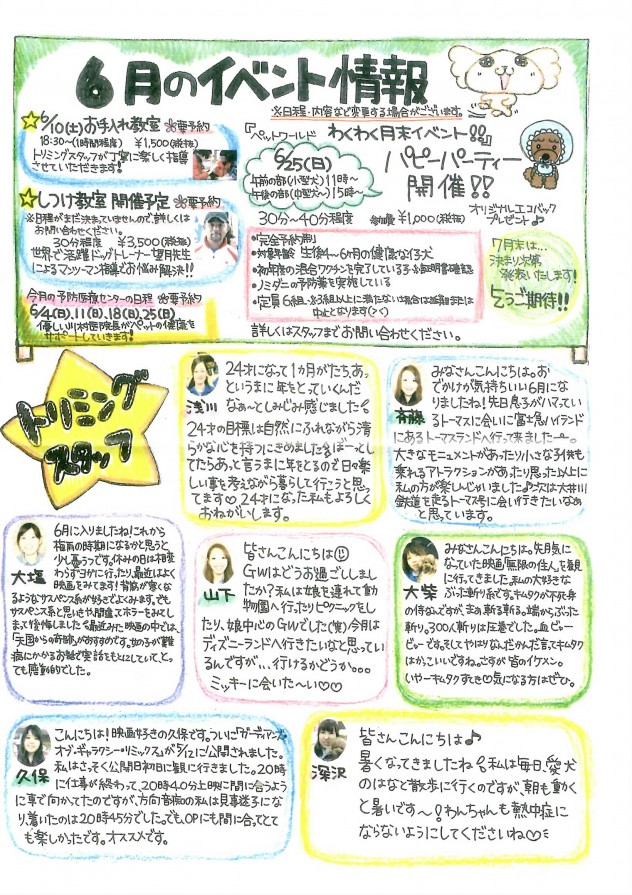 6月のイベント情報
※日程・内容など変更する場合がございます。
6/10(土)お手入れ教室 ※要予約
18:30~(1時間程度) ¥1,500(税抜)
トリミングスタッフが丁寧に楽しく指導
させていただきます!
しつけ教室 開催予定 ※要予約
※日程がまだ決まっていませんので、詳しくは
お問い合わせください。
30分程度 ¥3,500(税抜)
世界で活躍ドッグトレーナー望月先生
によるマンツーマン指導でお悩み解決!!
今月の予防医療センターの日程 ※要予約
6/4(日).11(日).18(日).25(日)
優しい川村医院長がペットの健康を
サポートしていきます!
『ペットワールド わくわく月末イベント!!』
6/25(日)
午前の部(小型犬)11時~
午後の部(中型犬~)15時~
パピーパーティー
開催!!
30分~40分程度 参加費 ¥1,000(税抜)
オリジナルエコバック
プレゼント♪
・完全予約制
・対象年齢 生後4~6ヶ月の健康な仔犬
・初年度の混合ワクチンを完了している子 ※証明書確認
・ノミダニの予防薬を実施している
・定員6組 ※3組以上に満たない場合は延期または
中止となります(>_<)
詳しくはスタッフまでお問い合わせください。
7月末は…
決まり次第
発表いたします!
どうご期待!!
トリミング
スタッフ
浅川
24才になって1か月がたち、あっ
というまに年をとっていくんだ
なぁ~としみじみ感じました
24才の目標は自然にふれながら清
らかな心を持つにきめました ぼーっとし
てたらあっと言うまに年をとるので日々楽
しい事を考えながら暮らして行こうと思っ
てます♡24才になった私もよろしく
おねがいします。
斉藤
みなさんこんにちは。お
でかけが気持ちいい6月にな
りましたね!先日息子がハマってい
るトーマスに会いに富士急ハイランド
にあるトーマスランドへ行って来ました。
大きなモニュメントがあったり小さな子供も
乗れるアトラクションがあったり思った以上に
私の方が楽しんじゃいました♪次は大井川
鉄道を走るトーマス号に会い行きたいなぁ
と思っています。
大塩
6月に入りましたね!これから
梅雨の時期になるかと思うと
少し憂うつです。休みの日は相変
わらずヨガに行ったり、最近はよく
映画をみてます!背筋が寒くな
るようなサスペンス系が好きでよくみます。でも
サスペンス系と思いきや間違ってホラーをみてし
まって後悔しました 最近みた映画の中では、
「天国からの奇跡」がおすすめです。女の子が難
病にかかるお話で実話をもとにしていて、とっ
ても感動的でした。
山下
皆さんこんにちは☺
GWはどうお過ごししまし
たか?私は娘を連れて動
物園へ行ったりピクニックをし
たり、娘中心のGWでした(笑)今月は
ディズニーランドへ行きたいなと思ってい
るんですが…行けるかどうか。。。
ミッキーに会いた~い♡♡
大柴
みなさんこんにちは。先月気に
なっていた映画「無限の住人」を観
に行ってきました。私の大好きな
ぶった斬り系です。キムタクが不死身
の侍なんですが、まぁ斬る斬る。端からぶった
斬り。300人斬りは圧巻でした。血ピュー
ピューです。そしてやはりなんだかんだ言ってキムタク
はかっこいいですね。さすが皆イケメン。
いやーキムタクすてき♡気になる方はぜひ。
久保
こんにちは!映画好きの久保です。ついに「ガーディアンズ
オブ・ギャラクシー・リミックス」が5/12に公開されました。
私はさっそく公開日初日に観に行きました。20時
に仕事が終わって、20時40分上映に間に合うよう
に車で向かってたのですが、方向音痴の私は見事迷子にな
り、着いたのは20時45分でした。でも、OPにも間に合ってとて
も楽しかったです。オススメです。
深沢
皆さんこんにちは♪
暑くなってきましたね 私は毎日、愛犬
のはなと散歩に行くのですが、朝も動く
と暑いです~ わんちゃんも熱中症に
ならないようにしてくださいね♡